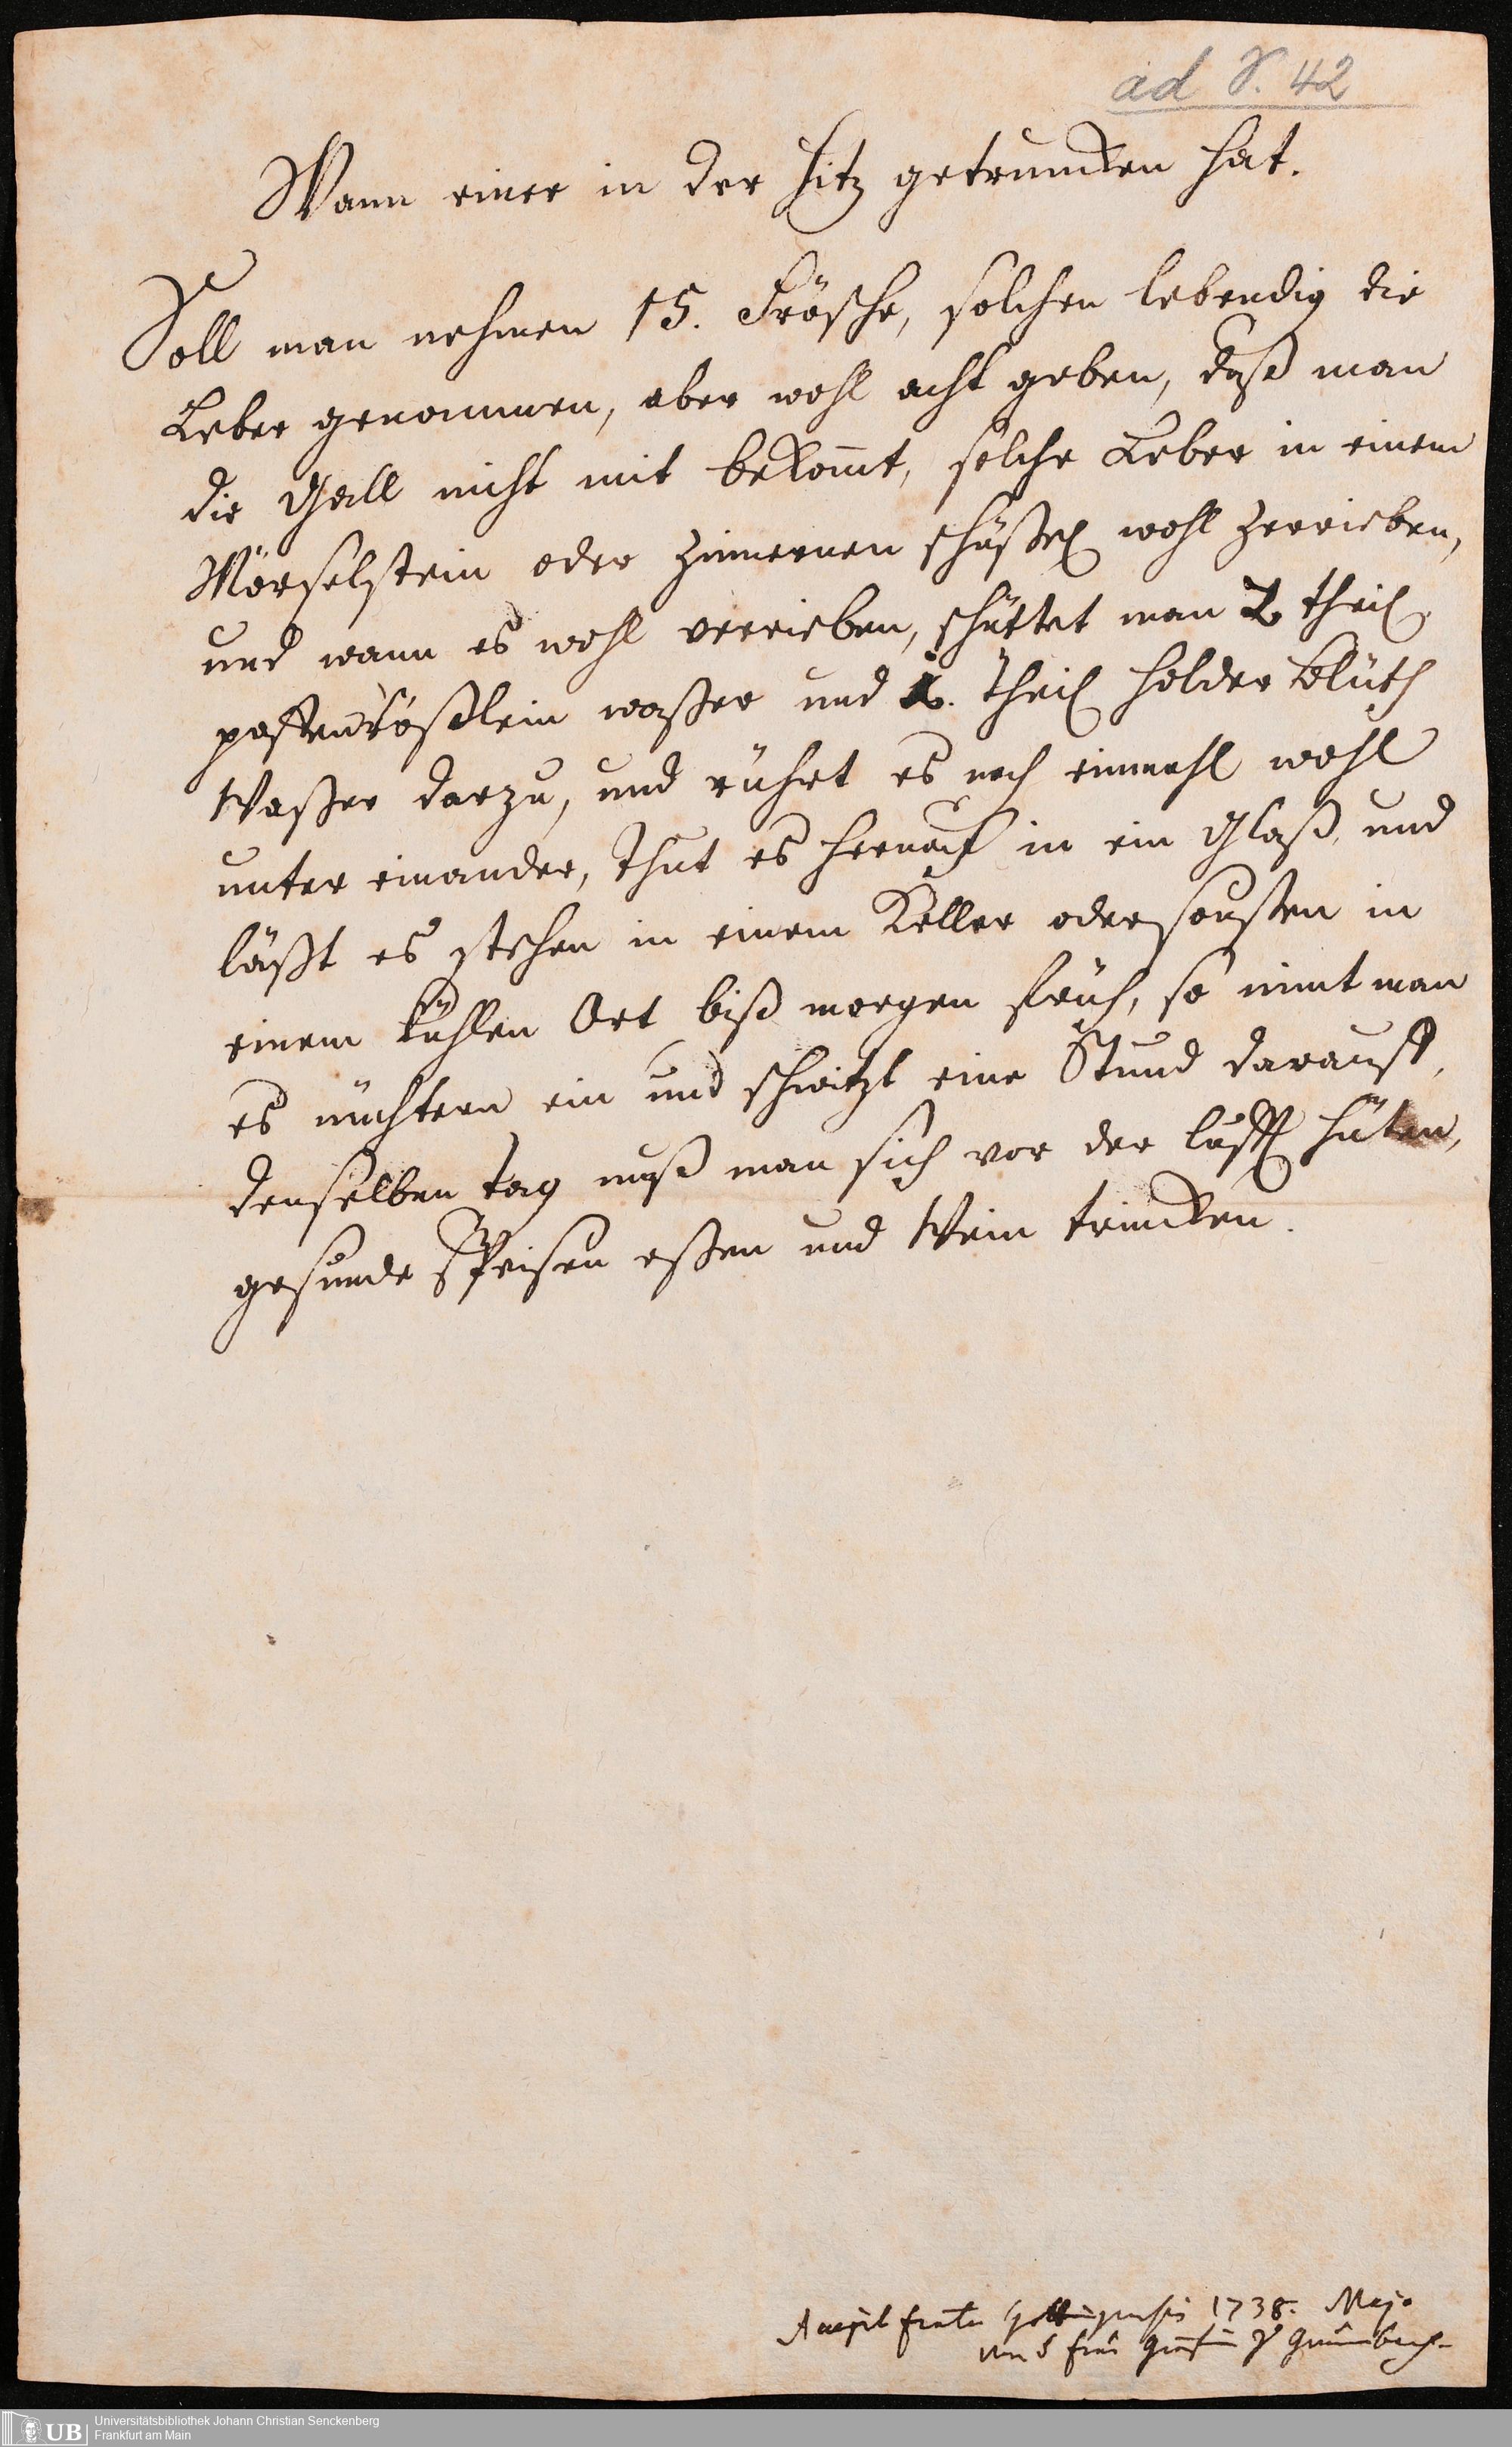 ad V. 42
Wann einer in der Hitz getruncken hat.
Soll man nehmen 15. Frösche, solchen lebendig die
Leber genommen, aber wohl acht geben, daß man
die Gall nicht mit bekom̄t, solche Leber in einem
Mörselstein oder zinnernen schüßel wohl zerrieben,
und wann es wohl verrieben, schüttet man 2 theil
waßer und 1. theil holder blüth
Waßer darzu, und rührt es noch einmahl wohl
unter einander, thut es hernach in ein Glaß, und
läßt es stehen in einem Keller oder sonsten in
einem kühlen Ort biß morgen früh, so nimt man
es nüchtern ein und schwitzt eine Stund darauff,
denselben tag muß man sich vor der lufft hüten,
gesunde Speisen eßen und Wein trincken.
1738. Majo
UB
Universitätsbibliothek Johann Christian Senckenberg
Frankfurt am Main